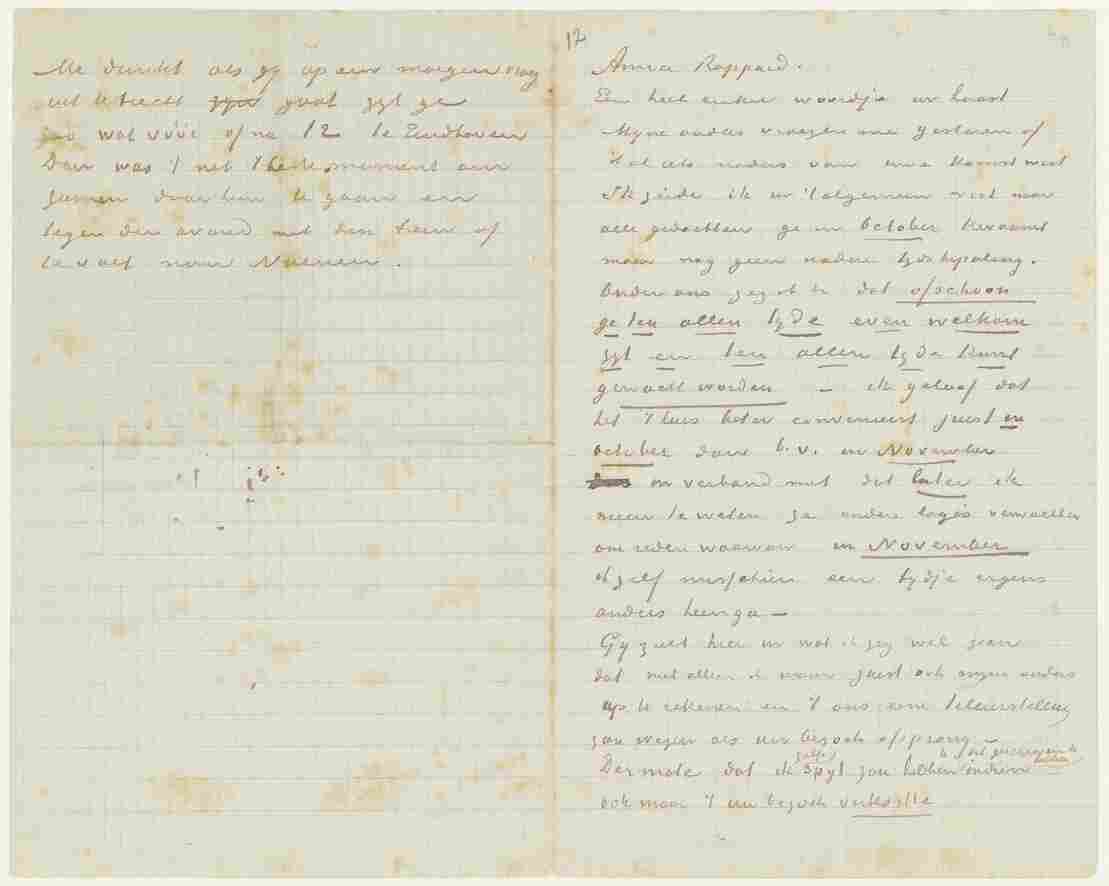 Me dunkt als gij op een morgen vroeg
uit Utrecht zijn gaat zijt ge
zoo wat vóór of na 12 te Eindhoven
Dan was 't net 't beste moment om
samen door hen te gaan en
tegen den avond met den trein of
te voet naar Nuenen.
12
Amice Rappard.
Een heel enkel woordje in haast
Mijne ouders vroegen me gisteren of
'k al iets naders van uwe komst wist
Ik zeide ik in 't algemeen niet maar
alle gedachten ge in October kwaamt
maar nog geen nadere tijdsbepaling.
Onder ons zeg ik U dat ofschoon
ge ten allen tijde even welkom
zijt en ten allen tijde kunt
gewacht worden – ik geloof dat
het thuis beter convenieert juist in
October dan b.v. in November
in verband met dat later ik
meen te weten ze andere logés verwachten
om reden waarvan in November
ik zelf misschien een tijdje ergens
anders heenga –
Gij zult hier in wat ik zeg wel zien
dat niet alleen ik maar juist ook mijne ouders
op U rekenen en 't ons eene teleurstelling
zou wezen als uw bezoek afsprong –
Dermate dat ik spijt zou hebben indien
ook maar 't uw bezoek verkortte